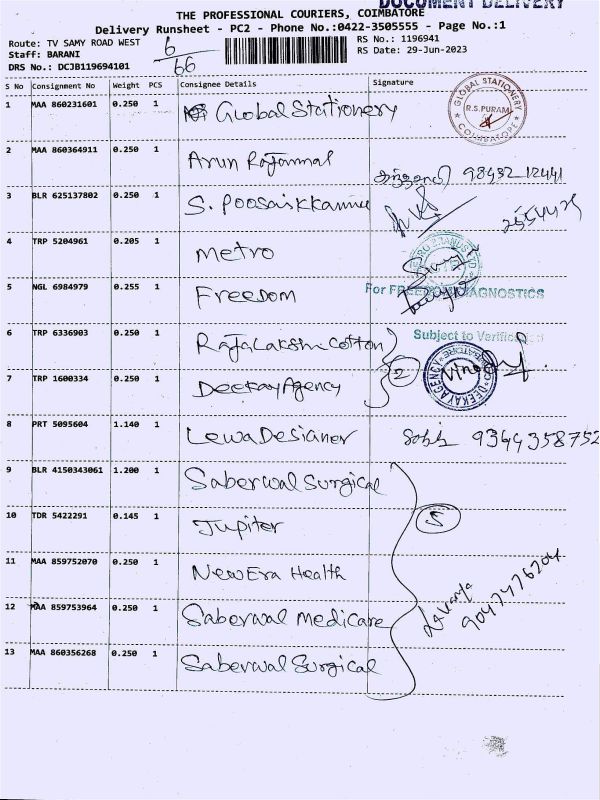 DOCUMENT DELIVERY
THE PROFESSIONAL COURIERS, COIMBATORE
Delivery Runsheet - PC2 - Phone No.:0422-3505555 - Page No.:1
Route: TV SAMY ROAD WEST
Staff: BARANI
DRS No.: DCJB119694101
6/66
RS No.: 1196941
RS Date: 29-Jun-2023
S No Consignment No Weight PCS Consignee Details Signature
1 MAA 860231601 0.250 1 Global Stationery
GLOBAL STATIONERY R.S.PURAM COIMBATORE
2 MAA 860364911 0.250 1 Arun Rajammal 98432 12441
3 BLR 625137802 0.250 1 S. Poosaikkannu
4 TRP 5204961 0.205 1 Metro
5 NGL 6984979 0.255 1 Freedom
For FREEDOM DIAGNOSTICS
6 TRP 6336903 0.250 1 RajaLakshmi Cotton
Subject to Verification
7 TRP 1600334 0.250 1 Deekay Agency 2
DEEKAY AGENCY COIMBATORE
8 PRT 5095604 1.140 1 Lewa Designer 9344358752
9 BLR 4150343061 1.200 1 Saberwal Surgical
10 TDR 5422291 0.145 1 Jupiter 5
11 MAA 859752070 0.250 1 New Era Health
12 MAA 859753964 0.250 1 Saberwal Medicare
Lavanya
9047476204
13 MAA 860356268 0.250 1 Saberwal Surgical